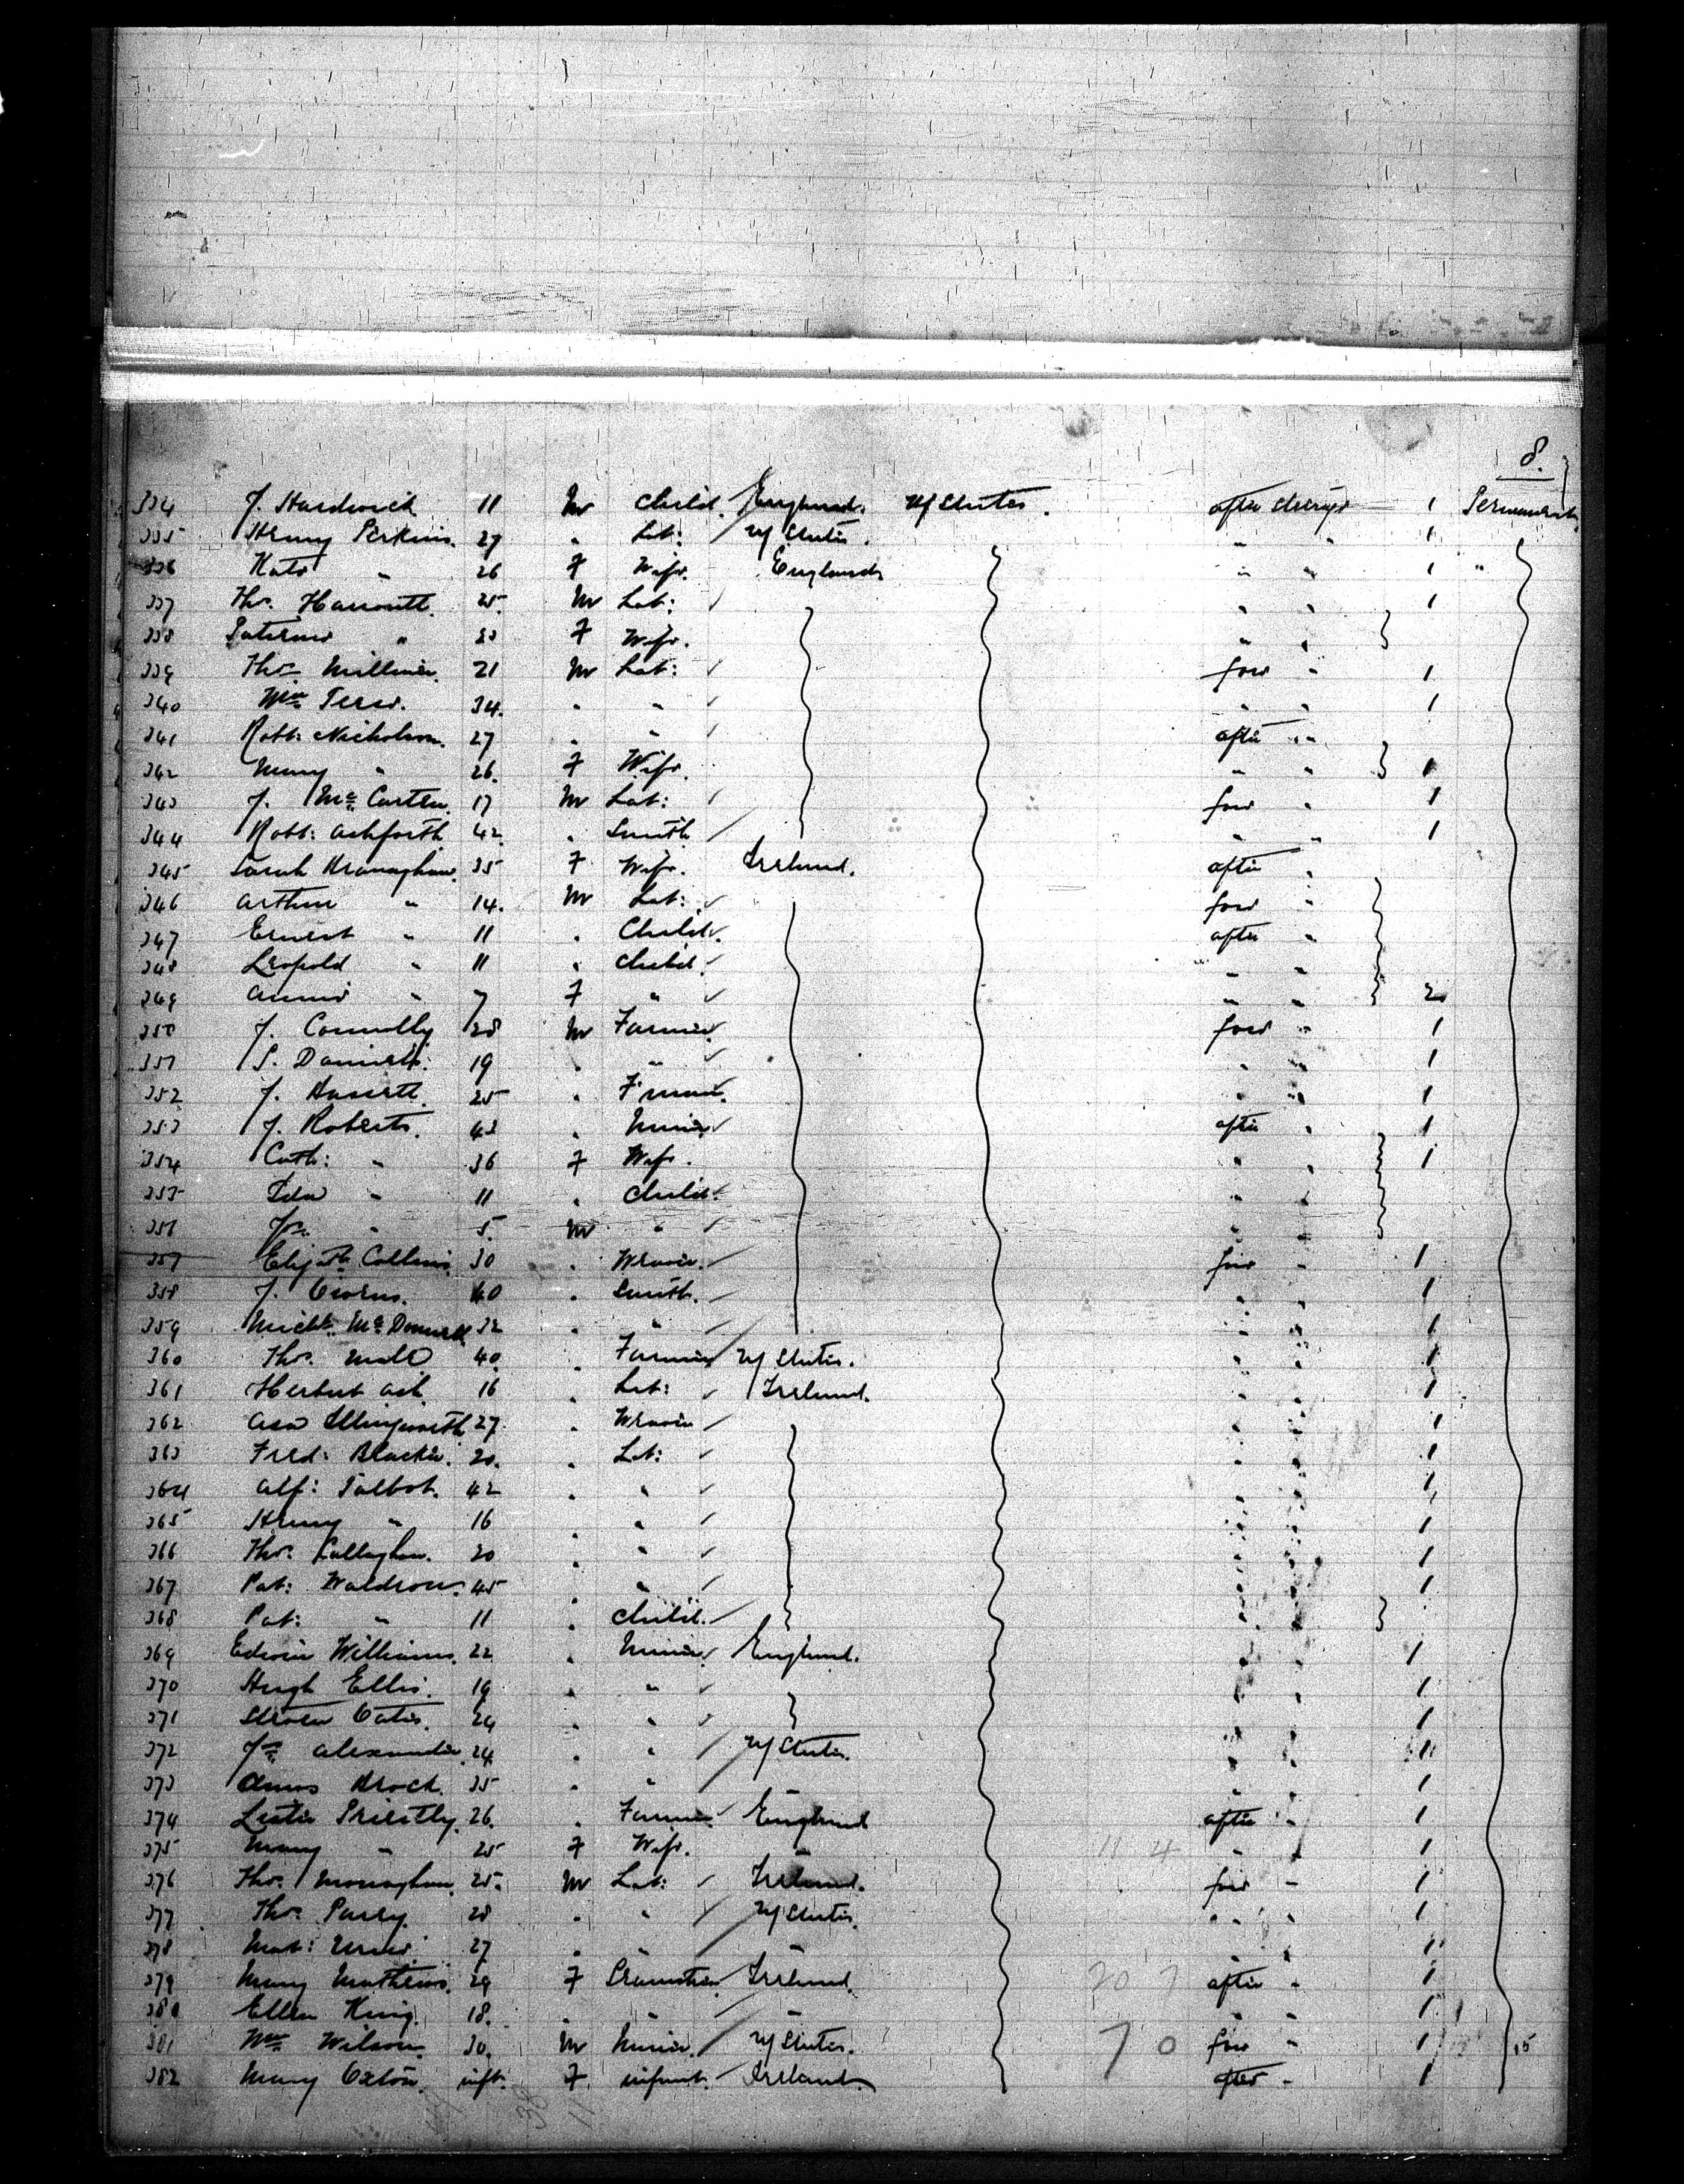 8.
334 J. Hardwick 11 M Child. England. U/States. after steerge 1 Permanent
335 Henry Perkins. 27 " Lab: U/States. " " 1
336 Kate " 26 F Wife. England " " 1 "
337 Thos. 25. M Lab: " " 1
338 " 23 F Wife. " "
339 Thos. Milliner. 21 M Lab: for " 1
340 Wm 34. " " " " 1
341 Robt: Nicholson. 27 " " after "
342 Mary " 26. F Wife. " " 1
343 J. McCarten 17 M Lab: for " 1
344 Robt: Ashforth 42 " Smith " " 1
345 Sarah 35 F Wife. Ireland. after "
346 Arthur " 14. M Lab: for "
347 Ernest " 11 " Child. after "
348 Leopold " 11 " Child. " "
349 Annie " 7 F " " " 2
350 J. Connolly 28 M Farmer. for " 1
351 P. Daniels. 19 " " " " 1
352 J. 25 " " " 1
353 J. Roberts. 43 " Miner after " 1
354 Cath: " 36 F Wife. " " 1
355 Ida " 11 " Child. " "
356 Jn. " 5. M " " "
357 Elijah Collins 30 " Weaver. for " 1
358 J. 40 " Smith. " " 1
359 Michl. McDonnell 32 " " " " 1
360 Thos. 40. " Farmer U/States. " " 1
361 Herbert Ash 16 " Lab: Ireland. " " 1
362 Asa Illingworth 27. " Weaver " " 1
363 Fred: 20. " Lab: " " 1
364 Alf: Talbot. 42 " " " " 1
365 Henry " 16 " " " " 1
366 Thos. Callaghan. 20 " " " " 1
367 Pat: Waldron. 45 " " " " 1
368 Pat: " 11 " Child. " "
369 Edwin Williams. 22 " Miner England. " " 1
370 Hugh Ellis. 19 " " " " 1
371 Oates. 24 " " " " 1
372 Jn. Alexander. 24 " " U/States. " " 1
373 Amos Brock. 35 " " " " 1
374 Priestly. 26. " Farmer England after " 1
375 Mary " 25 F Wife. " " " 1
376 Thos. Monaghan. 25. M Lab: Ireland. for " 1
377 Thos. 28 " " U/States. " " 1
378 Mat: 27 " " " " " 1
379 Mary Mathews. 29 F Ireland. 20 7 after " 1
380 Ellen King. 18. " " " " " 1
381 Wm Wilson. 30. M Miner. U/States. 7 0 for " 1
382 Mary Oxton. inft. F infant. Ireland. after " 1